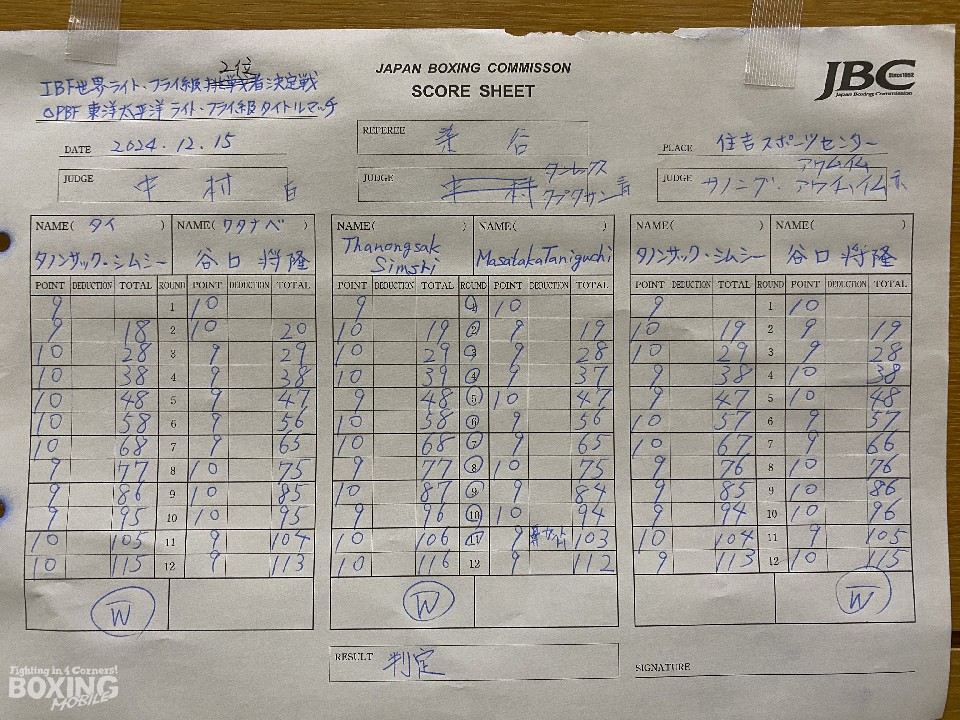 2位
IBF世界ライト・フライ級挑戦者決定戦
OPBF東洋太平洋ライト・フライ級タイトルマッチ
JAPAN BOXING COMMISSON
SCORE SHEET
JBC Since1952
Japan Boxing Commission
DATE 2024.12.15
REFEREE
PLACE 住吉スポーツセンター
JUDGE 中村 白
JUDGE 中村 タンレックス
タプタサン 青
JUDGE サノング. アウムイム
アウチュイム 赤
NAME( タイ ) NAME( ワタナベ ) NAME( ) NAME( ) NAME( ) NAME( )
タノンサック・シムシー 谷口将隆 Thanongsak Simsri Masataka Taniguchi タノンサック・シムシー 谷口将隆
POINT DEDUCTION TOTAL ROUND POINT DEDUCTION TOTAL POINT DEDUCTION TOTAL ROUND POINT DEDUCTION TOTAL POINT DEDUCTION TOTAL ROUND POINT DEDUCTION TOTAL
9 1 10 9 1 10 9 1 10
9 18 2 10 20 10 19 2 9 19 10 19 2 9 19
10 28 3 9 29 10 29 3 9 28 10 29 3 9 28
10 38 4 9 38 10 39 4 9 37 9 38 4 10 38
10 48 5 9 47 9 48 5 10 47 9 47 5 10 48
10 58 6 9 56 10 58 6 9 56 10 57 6 9 57
10 68 7 9 65 10 68 7 9 65 10 67 7 9 66
9 77 8 10 75 9 77 8 10 75 9 76 8 10 76
9 86 9 10 85 10 87 9 9 84 9 85 9 10 86
9 95 10 10 95 9 96 10 10 94 9 94 10 10 96
10 105 11 9 104 10 106 11 9 103 10 104 11 9 105
10 115 12 9 113 10 116 12 9 112 9 113 12 10 115
W W W
RESULT 判定
SIGNATURE
Fighting in 4 Corners!
BOXING
MOBILE